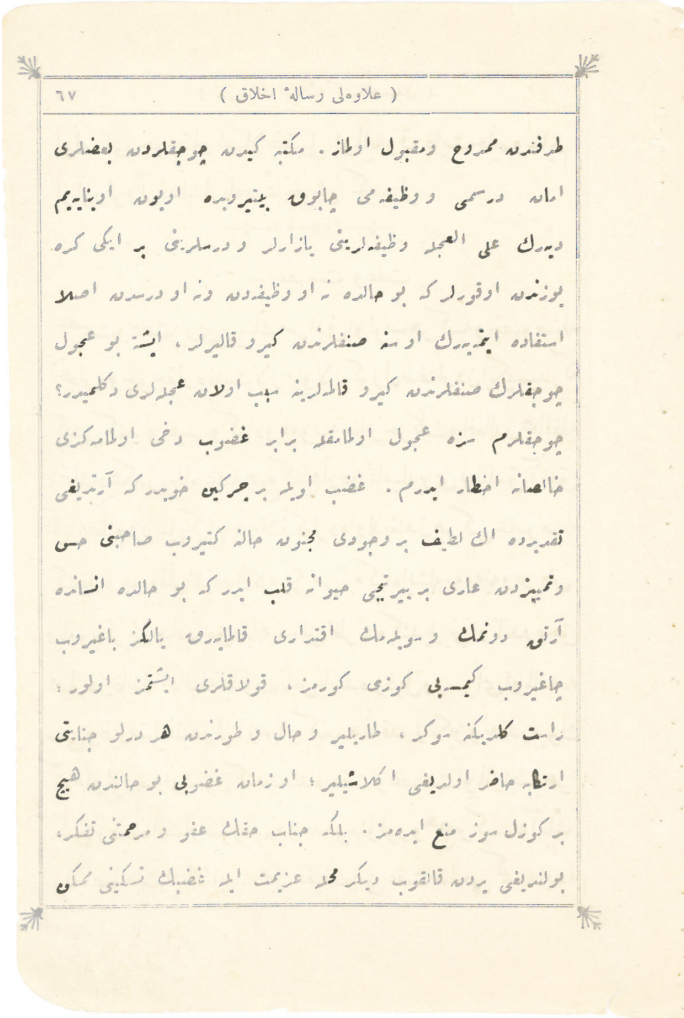 ٦٧ ( علاوه‌لی رسالهٔ اخلاق )
طرفندن ممدوح ومقبول اولماز . مكتبه كیدن چوجقلردن بعضلری
امان درسمی و وظیفه‌می چابوق بیتیروبده اویون اوینایه‌یم
دیه‌رك علی العجله وظیفه‌لرینی یازارلر و درسلرینی بر ایكی كره
یوزندن اوقورلر كه بو حالده نه او وظیفه‌دن ونه او درسدن اصلا
استفاده ایتمیه‌رك او سنه صنفلرندن كیرو قالیرلر ، ایشته بو عجول
چوجقلرك صنفلرندن كیرو قالمه‌لرینه سبب اولان عجله‌لری دكلمیدر؟
چوجقلرم سزه عجول اولمامقله برابر غضوب دخی اولمامه‌كزی
خالصانه اخطار ایدرم . غضب اویله بر چركین خویدر كه آرتدیغی
تقدیرده اك لطیف بر وجودی مجنون حالنه كتیروب صاحبنی حس
وتمییزدن عاری بر ییرتیجی حیوانه قلب ایدر كه بو حالده انسانده
آرتق دوشنمك و سویلمه‌مك اقتداری قالمایه‌رق یالكز باغیروب
چاغیروب كیمسه‌یی كوزی كورمز ، قولاقلری ایشتمز اولور ؛
راست كلدیكنه سوكر ، طاریلیر و حال و طورندن هر درلو جنایتی
ارتكابه حاضر اولدیغی اكلاشیلیر ؛ او زمان غضوبی بو حالندن هیچ
بر كوزل سوز منع ایده‌مز . بلكه جناب حقك عفو و مرحمتنی تفكر ،
بولندیغی یردن قالقوب دیكر محله عزیمت ایله غضبك تسكینی ممكن